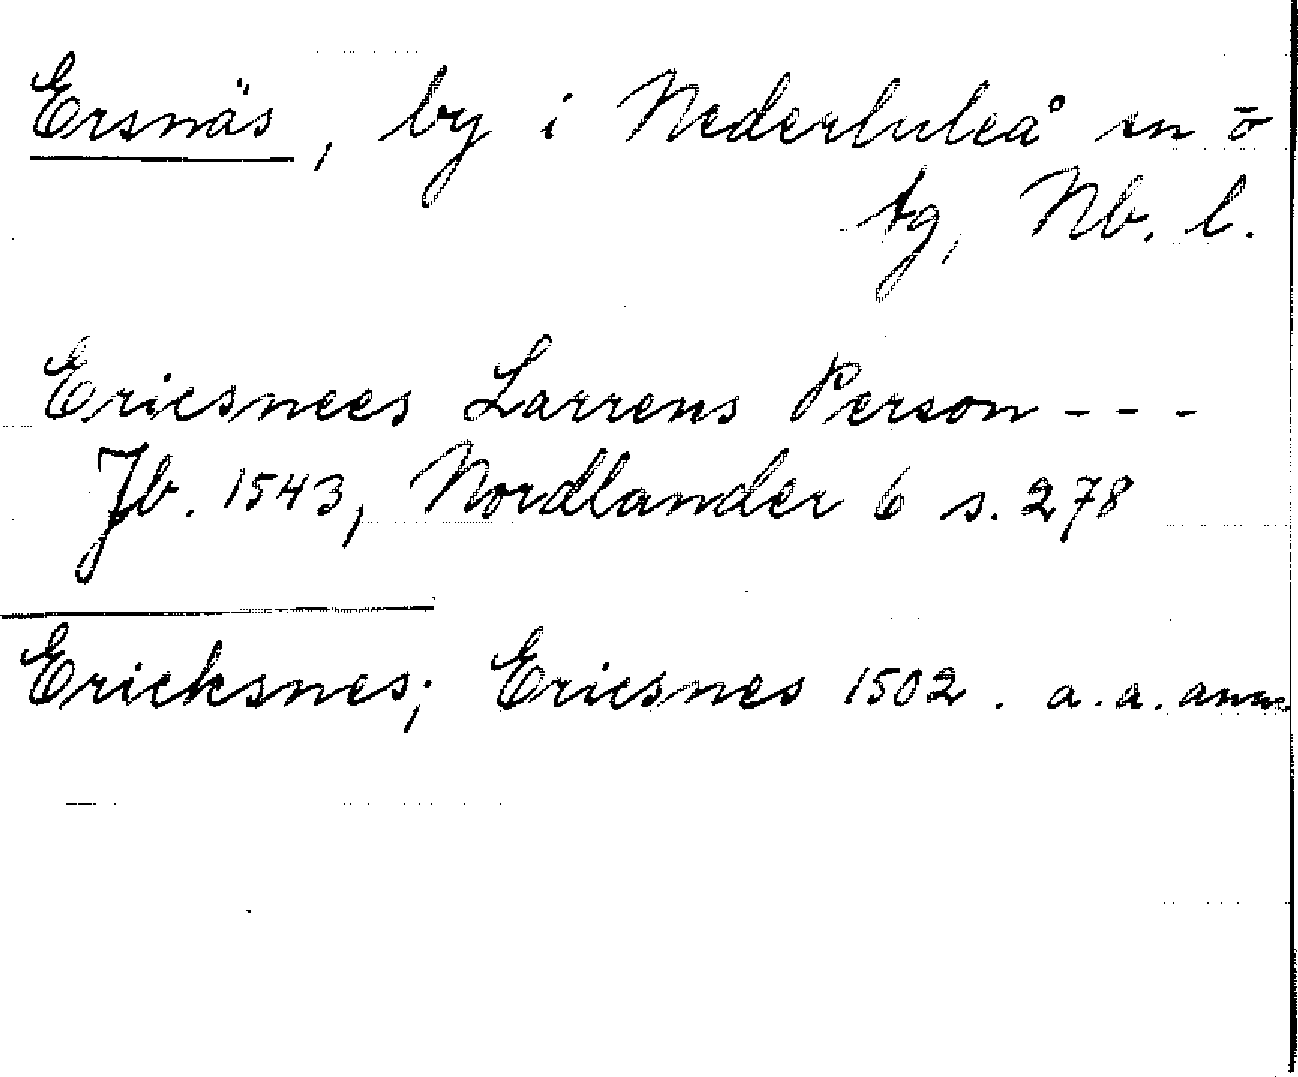 Ersnäs, by i Nederluleå sn ö
tg, Nb. l.
Ericsnees Larrens Person - - -
Jb. 1543, Nordlander 6 s. 278
Ericksnes; Ericsnes 1502. a.a. anm.